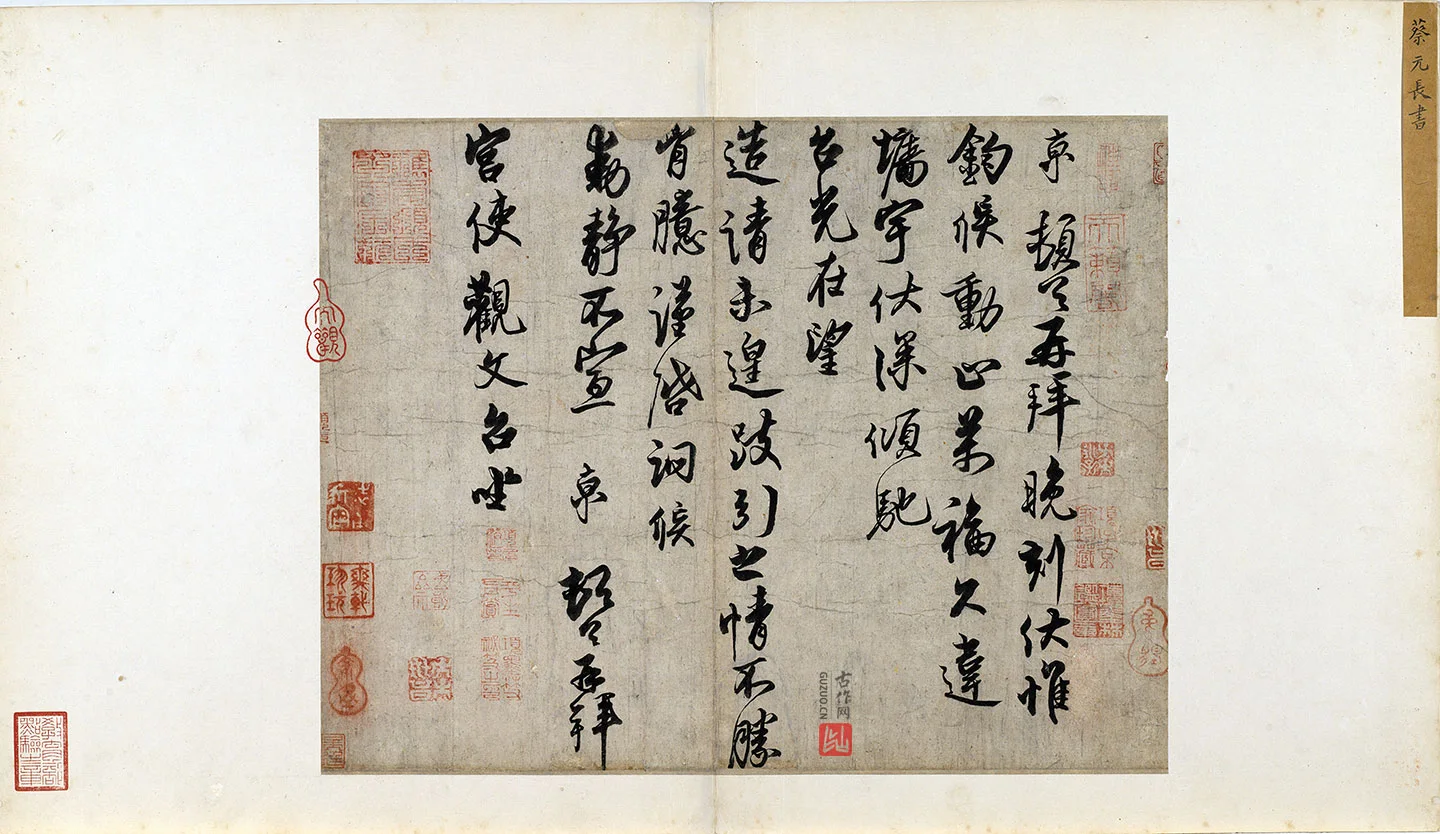 蔡元長書
京頓首再拜晚刻伏惟
鈞候動止萬福久違
墉宇伏深傾馳
台光在望
造請未遑跂引之情不勝
胷臆謹啓詗候
動靜不宣京頓首再拜
宮使觀文台坐
古作网
GUZUO.CN